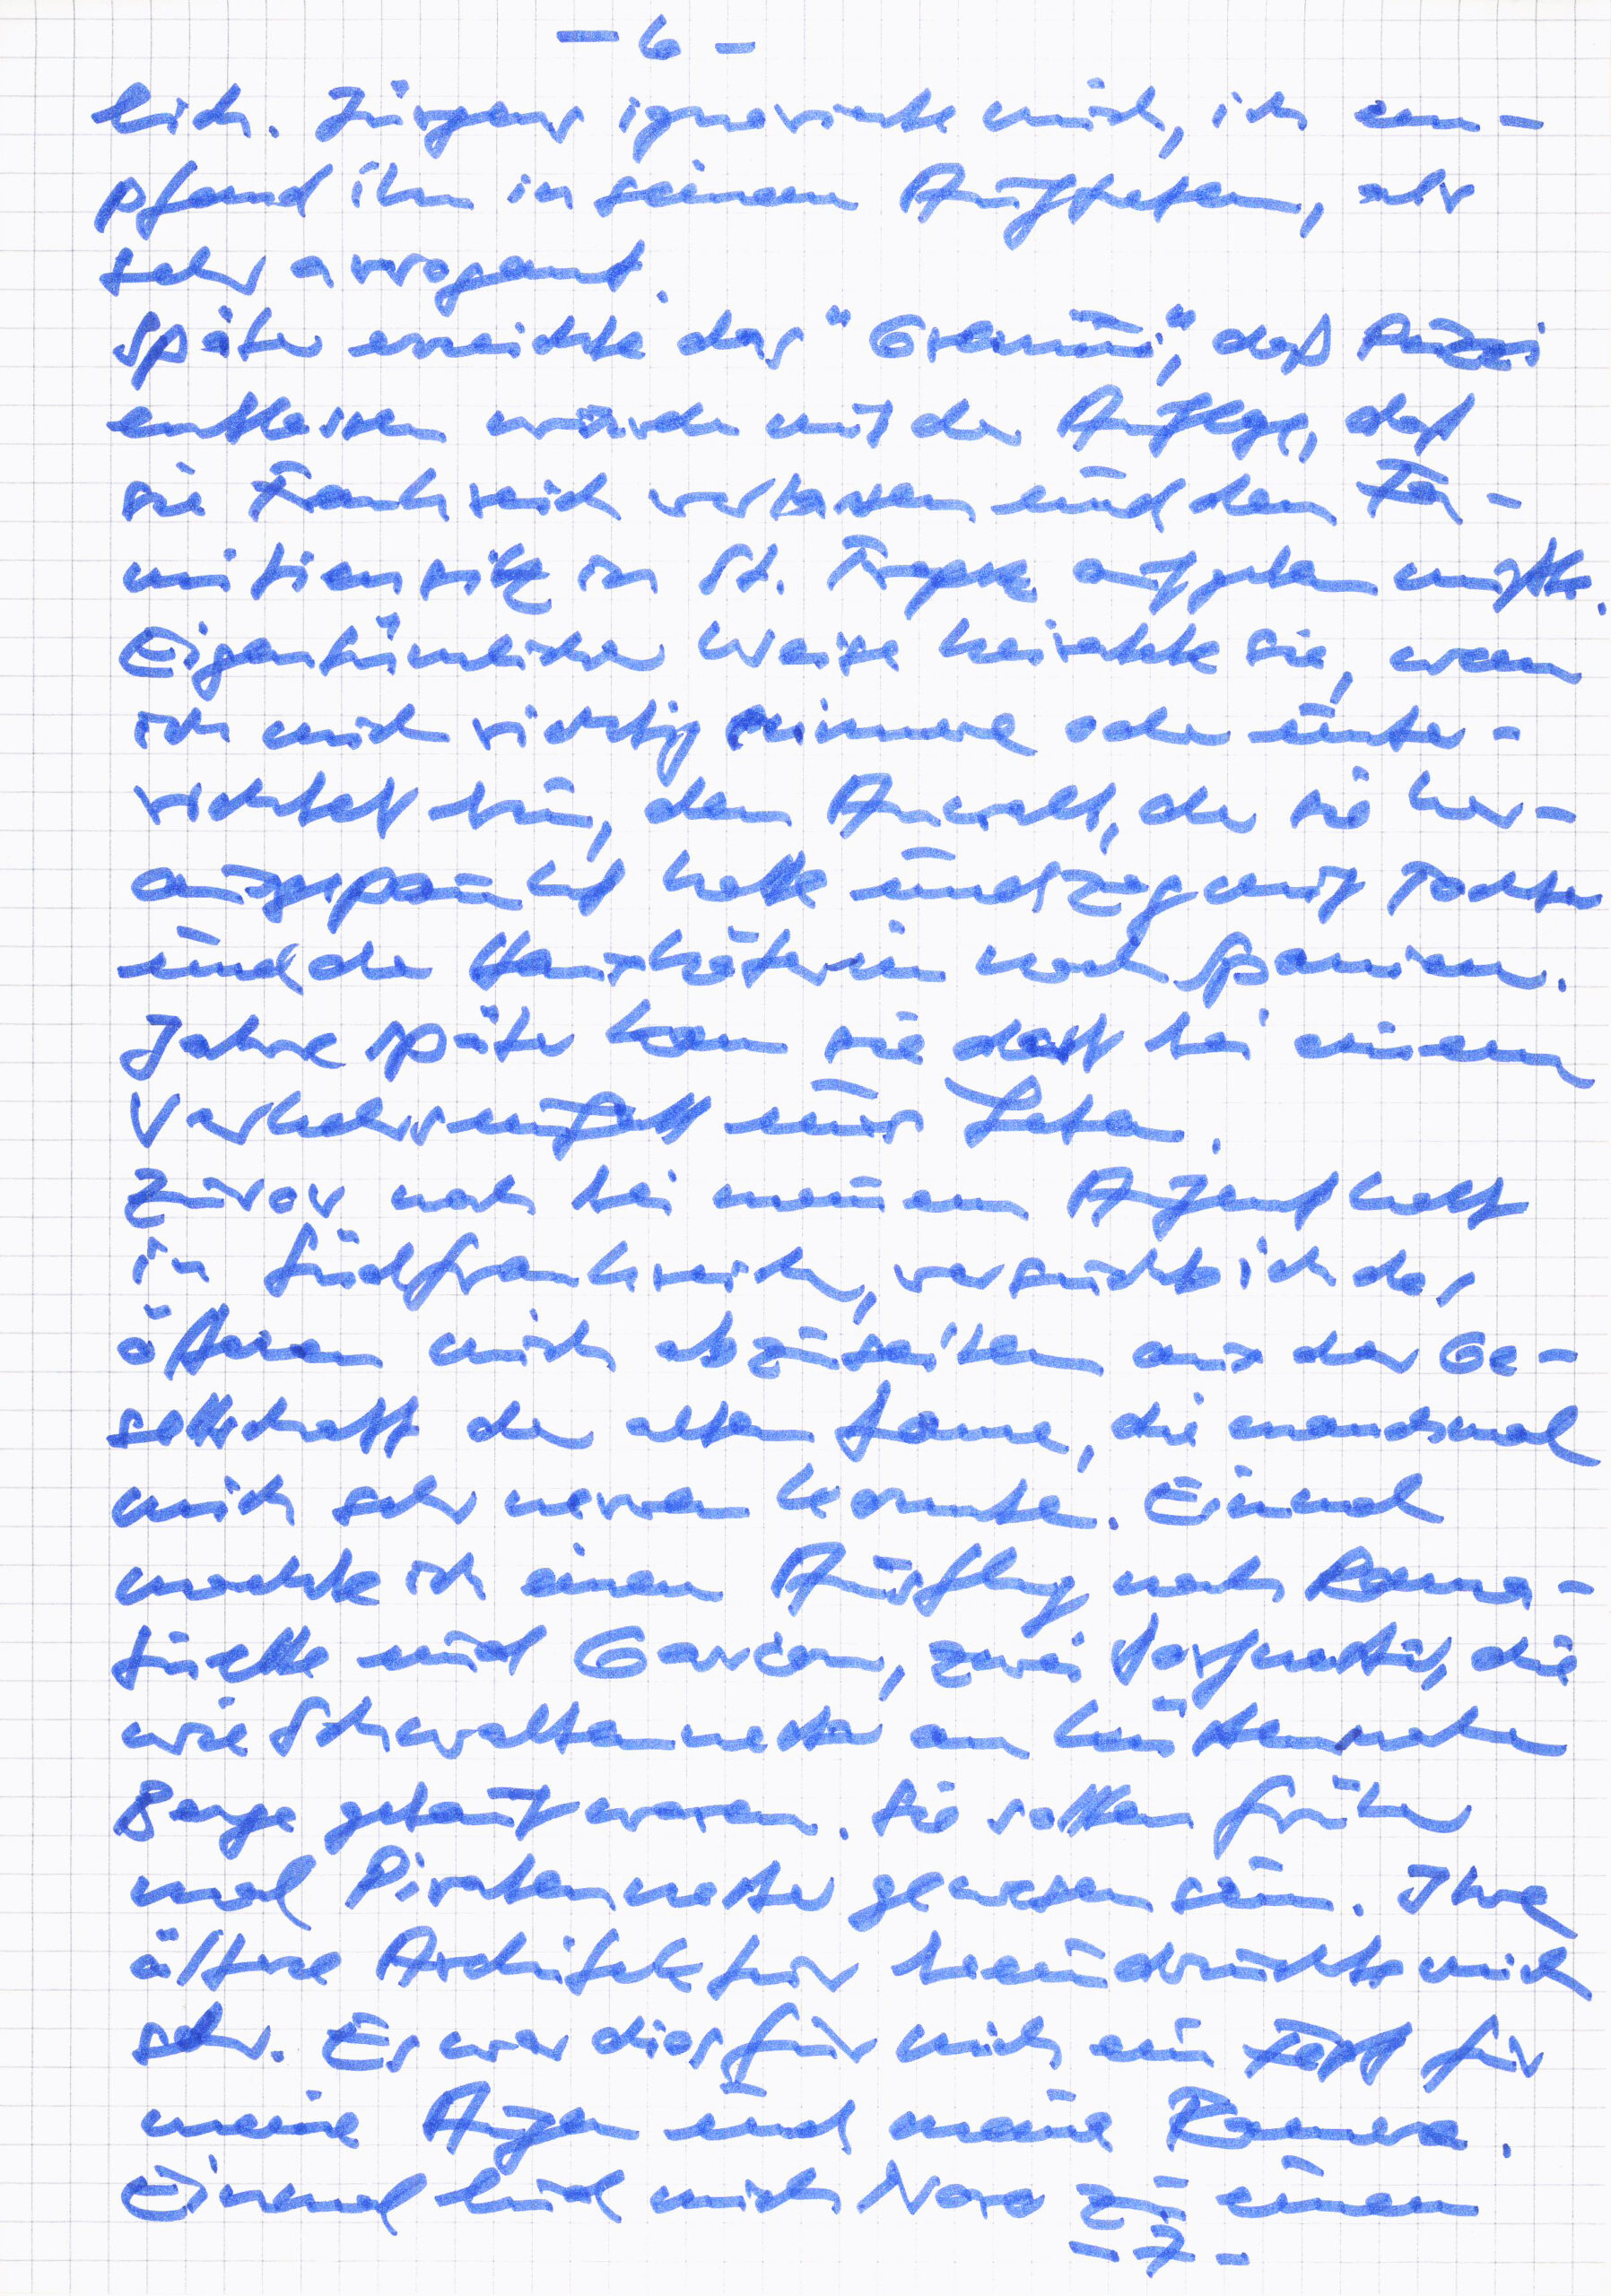 - 6 -
lich. Jürgens ignorierte mich, ich em-
pfand ihn in seinem Auftreten, als
sehr arrogant.
Später erreichte das "Gremium", daß
entlassen wurde mit der Auflage, daß
sie Frankreich verlassen und den Fa-
miliensitz in St. Tropez aufgeben mußte.
Eigentümlicher Weise heiratete sie, wenn
ich mich richtig erinnere oder unter-
richtet bin, den Anwalt, der sie her-
ausgepaukt hatte und zog mit Tochter
und der Haushälterin nach Spanien.
Jahre später kam sie dort bei einem
Verkehrsunfall ums Leben.
Zuvor noch bei meinem Aufenthalt
in Südfrankreich, versuchte ich des
öfteren mich abzuseilen aus der Ge-
sellschaft der alten Dame, die manchmal
mich sehr nerven konnte. Einmal
machte ich einen Ausflug nach Rama-
tuelle und Garcon, zwei Dorfnester, die
wie Schwalbennester an küstennahe
Berge gebaut waren. Sie sollen früher
mal Piratennester gewesen sein. Ihre
ältere Architektur beeindruckte mich
sehr. Es war dies für mich ein Fest für
meine Augen und meine Kamera.
Einmal lud mich Nora zu einem
- 7 -